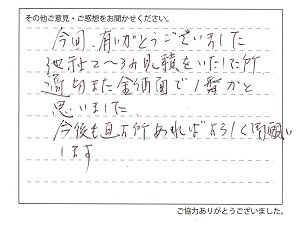 その他ご意見・ご感想をお聞かせください。
今回、有りがとうございました
他社で2～3カ見積をいたして所
適切また金価面で1番かと
思いました
今後も且所あればよろしく御願い
します
ご協力ありがとうございました。